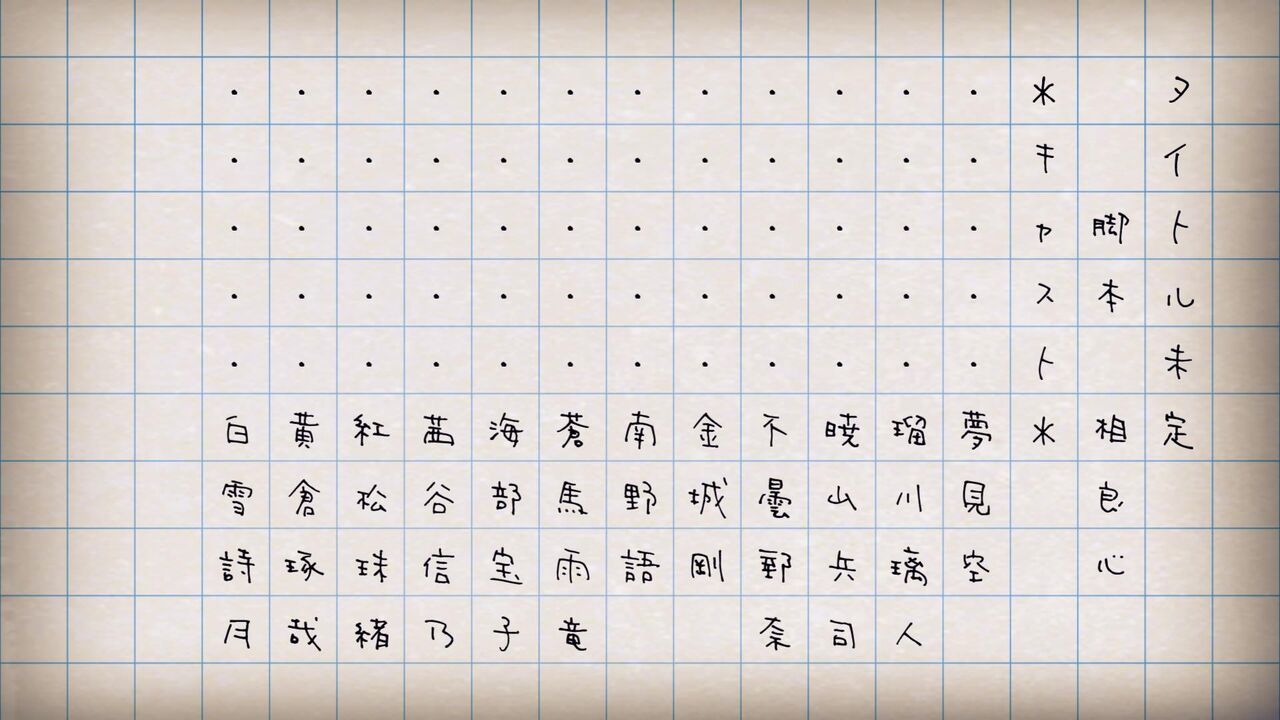 タイトル未定
脚本　相良心
＊キャスト＊
・・・・・夢見空
・・・・・瑠川璃人
・・・・・暁山兵司
・・・・・不曇郵奈
・・・・・金城剛
・・・・・南野語
・・・・・蒼馬雨竜
・・・・・海部宝子
・・・・・茜谷信乃
・・・・・紅松珠緒
・・・・・黄倉琢哉
・・・・・白雪詩月